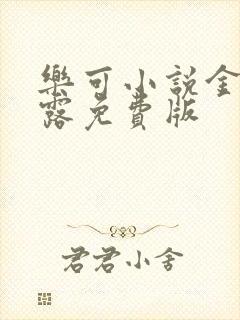 樂可小說金
露免費版
君君小舍